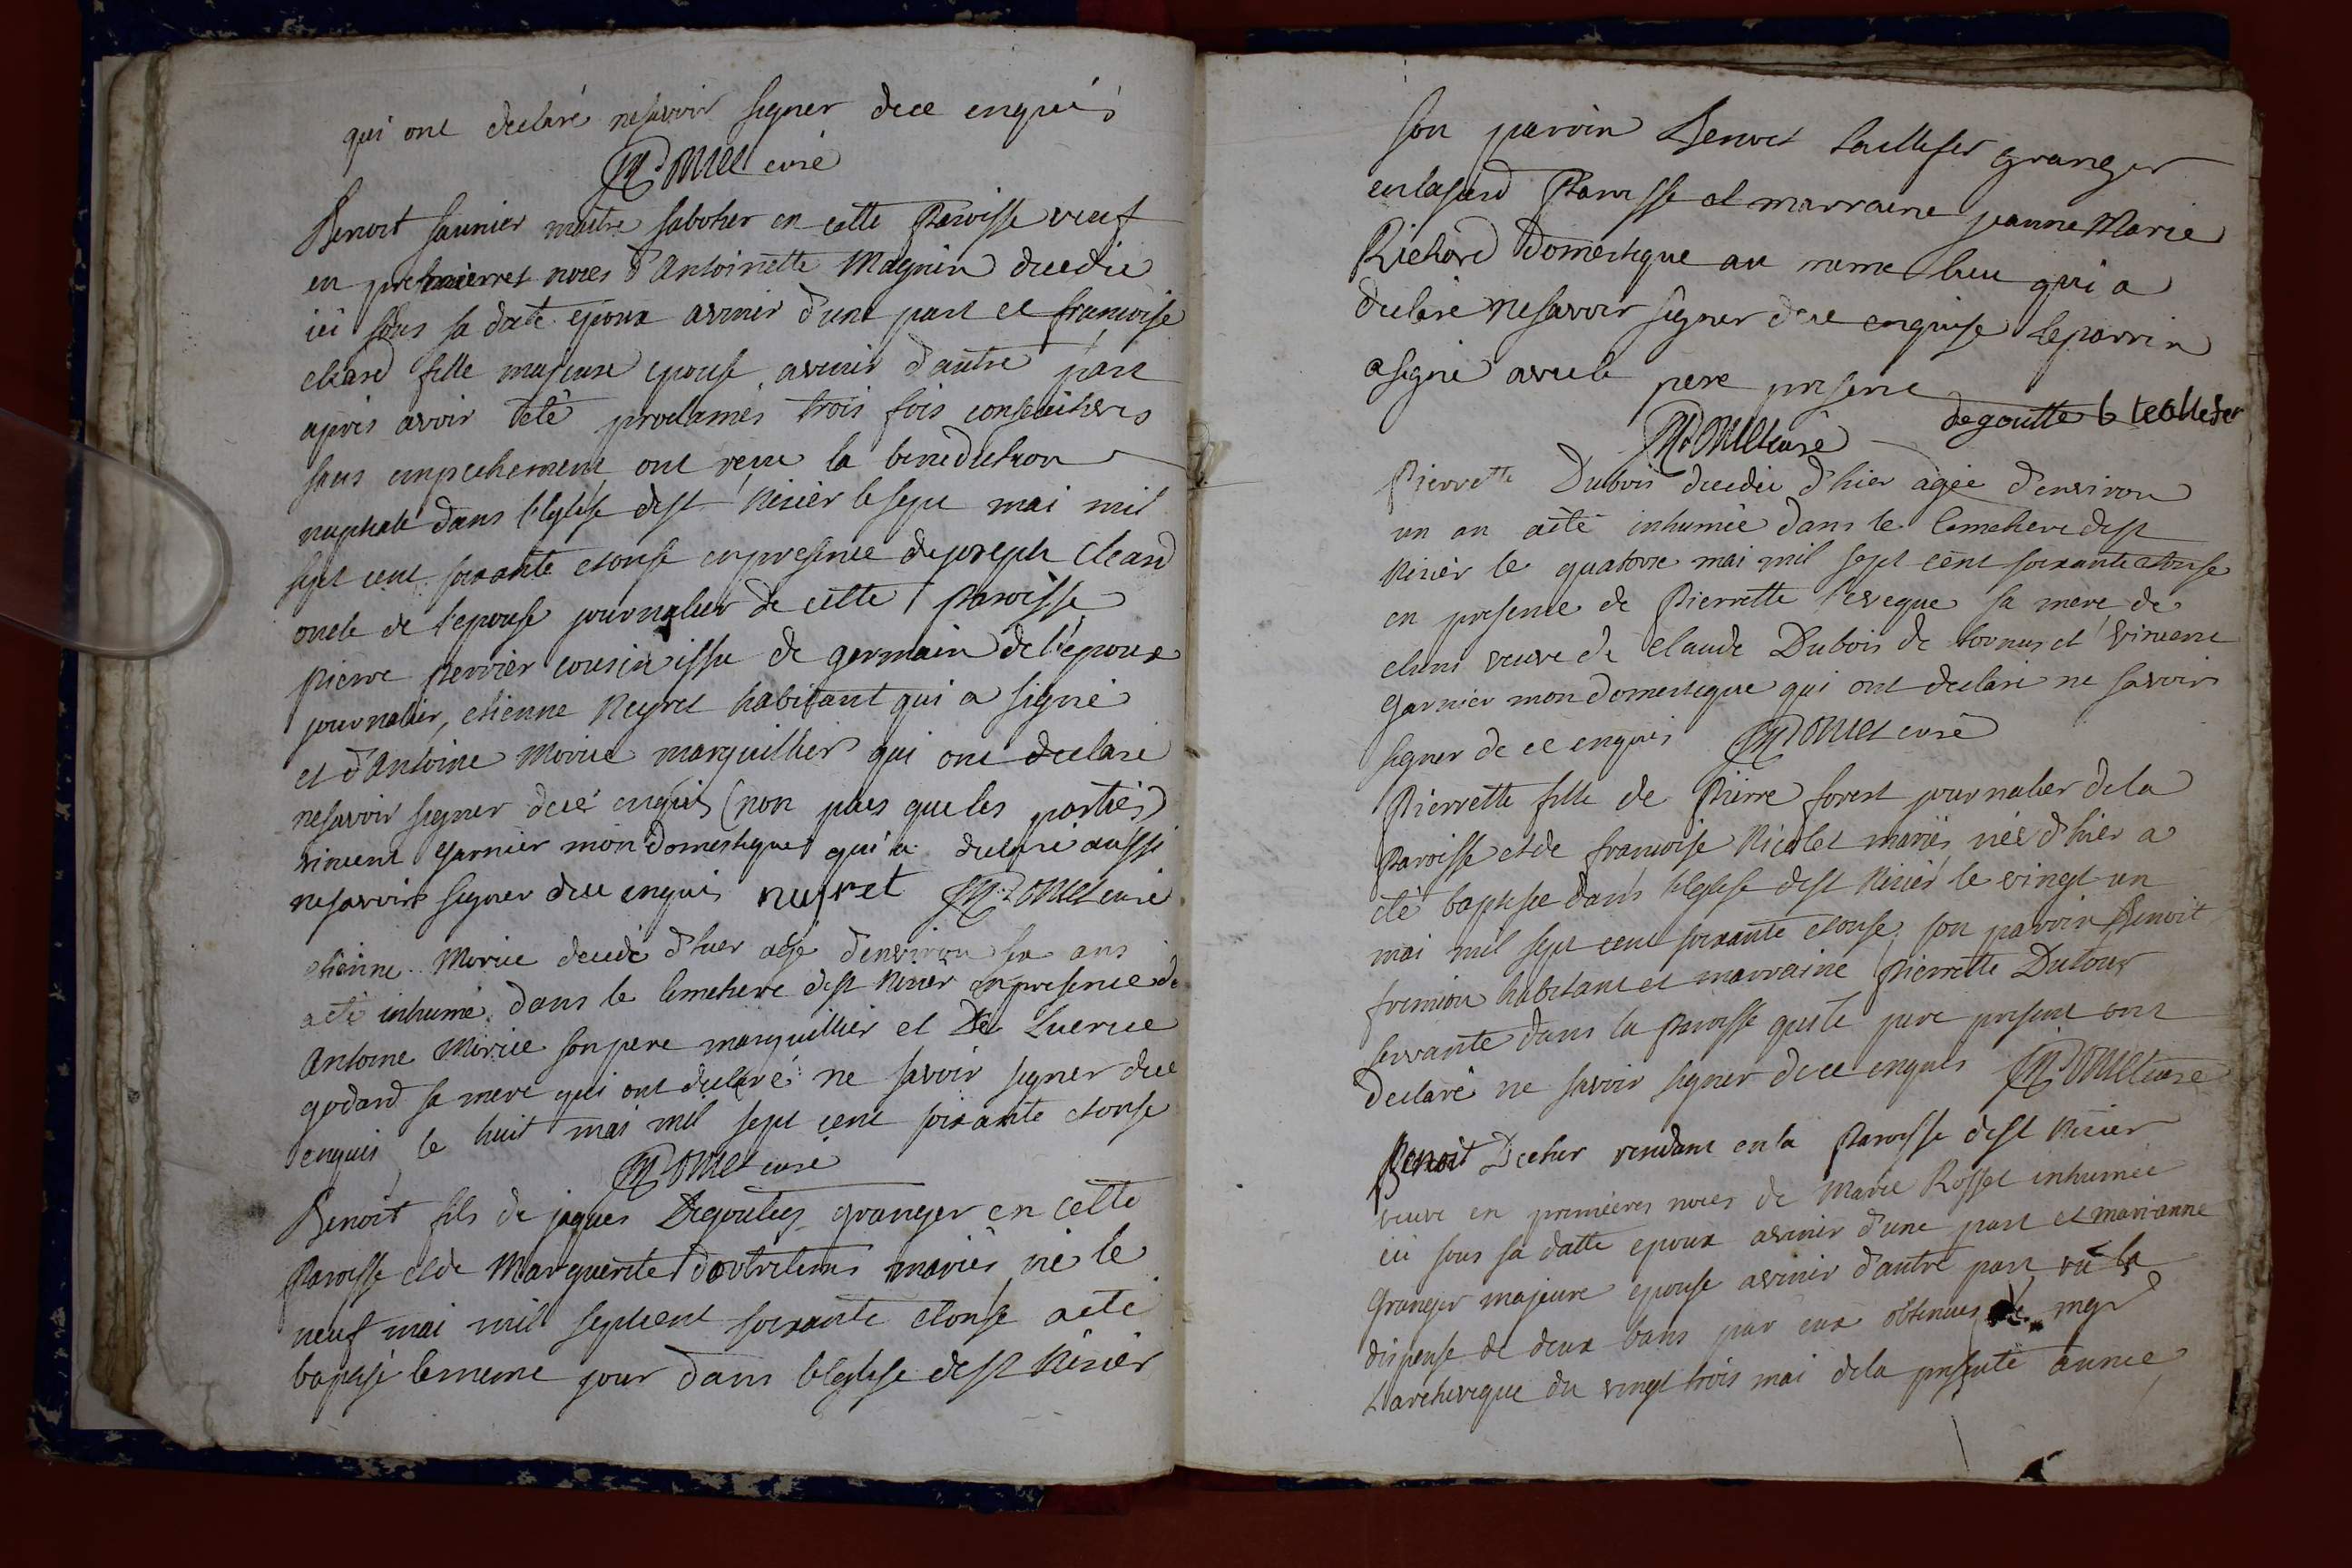 qui ont declaré nesavoir signer dece enquis
curé
Benoit saunier maitre sabotier en cette Paroisse veuf
en premierres noces d'Antoinette Magnin decedée
ici sous sa date epoux avenir d'une part et francoise
eleard fille majeure epouse avenir d'autre part
après avoir eté proclamés trois fois consecutives
sans empechement ont reçu la benediction
nuptiale dans l'Eglise dest Nisier le sept mai mil
sept cent soixante etonse enpresence de joseph eleard
oncle de l'epouse journalier de cette Paroisse
pierre perrier cousin issu de germain de l'epoux
journalier, etienne Neyret habitant qui a signé
et d'Antoine Morice marguillier qui ont declaré
nesavoir signer dece enquis (non plus que les parties)
vincent garnier mon domestique qui a declaré aussi
nesavoir signer dece enquis neyret curé
etienne Morice decedé d'hier agé d'environ six ans
aeté inhumé dans le Cimetiere dest Nisier enpresence de
Antoine Morice son pere marguillier et De Lucrece
godard sa mere qui ont declaré ne savoir signer dece
enquis le huit mai mil sept cent soixante etonse
curé
Benoit fils de jaques Degoutes granger en cette
Paroisse etde Marguerite mariés né le
neuf mai mil septcent soixante etonse aeté
baptisé lememe jour dans l'Eglise dest Nisier
son parrin Benoit granger
en Paroisse et marraine jeanne Marie
Richard Domestique au meme lieu qui a
declaré nesavoir signer dece enquise leparrin
asigné avecle pere present
degoutte b
curé
Pierrette Dubois decedée d'hier agée d'environ
un an aété inhumée dans le Cimetiere dest
Nisier le quatorze mai mil sept cent soixante etonse
en presence de Pierrette l'eveque sa mere de
veuve de Claude Dubois de et vincent
garnier mon domestique qui ont declaré ne savoir
signer de ce enquis curé
Pierrette fille de Pierre forest journalier dela
Paroisse etde francoise Nicolet mariés née d'hier a
eté baptisée dans l'Eglise dest Nisier le vingt un
mai mil sept cent soixante etonse son parrin Benoit
habitant et marraine Pierrette Dutour
servante dans la Paroisse queste pere present ont
declaré ne savoir signer dece enquis curé
Benoit Decher vendant enla Paroisse dest Nisier
veuve en premieres noces de Marie Rosset inhumée
ici sous sa datte epoux avenir d'une part et marianne
Granger majeure epouse avenir d'autre part vû la
dispense de deux bans par eux obtenues de mgr
Larcheveque du vingt trois mai dela presente année